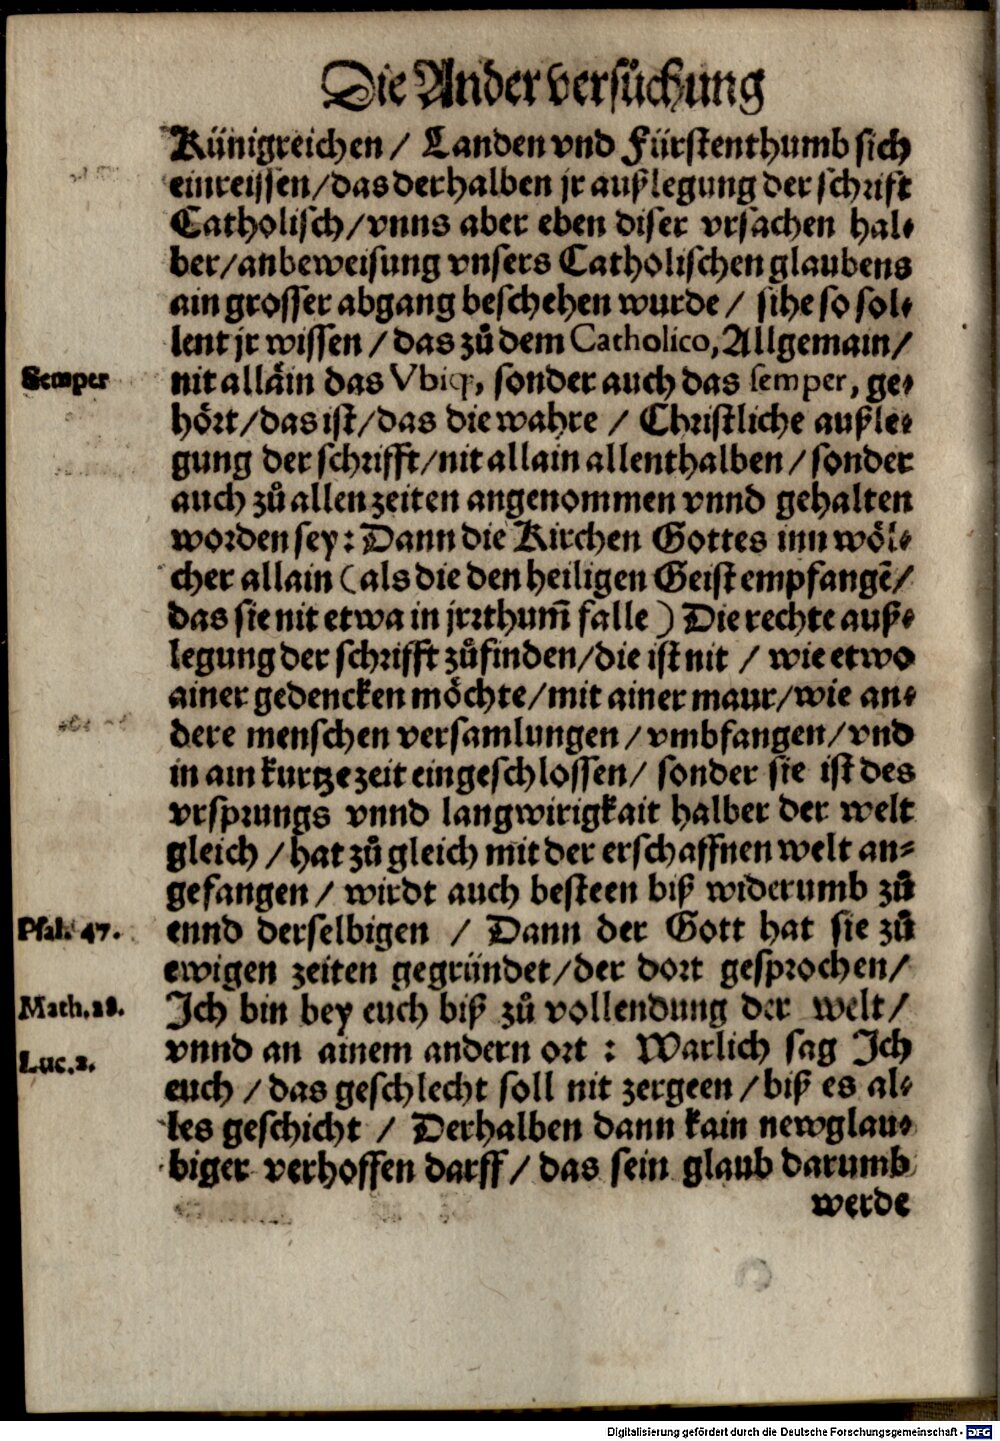 Die Ander versůchung
Künigreichen / Landen vnd Fürstenthumb sich
einreissen/das derhalben jr außlegung der schrift
Catholisch/vnns aber eben diser vrsachen hal-
ber/anbeweisung vnsers Catholischen glaubens
ain grosser abgang beschehen wurde / sihe so sol-
lent jr wissen / das zů dem Catholico, Allgemain/
Semper
nit alläin das Vbiq;, sonder auch das semper, ge-
hört/das ist/das die wahre / Christliche außle-
gung der schrifft/nit allain allenthalben/sonder
auch zů allen zeiten angenommen vnnd gehalten
worden sey: Dann die Kirchen Gottes inn wöl-
cher allain (als die den heiligen Geist empfangē/
das sie nit etwa in jrrthum̃ falle) Die rechte auß-
legung der schrifft zůfinden/die ist nit / wie etwo
ainer gedencken möchte/mit ainer maur/wie an-
dere menschen versamlungen/vmbfangen/vnd
in ain kurtze zeit eingeschlossen/ sonder sie ist des
vrsprungs vnnd langwirigkait halber der welt
gleich /hat zů gleich mit der erschaffnen welt an-
gefangen/ wirdt auch besteen biß widerumb zů
Psal. 47.
ennd derselbigen / Dann der Gott hat sie zů
ewigen zeiten gegründet/der dort gesprochen/
Math.28.
Jch bin bey euch biß zů vollendung der welt/
Luc.2.
vnnd an ainem andern ort : Warlich sag Jch
euch /das geschlecht soll nit zergeen/biß es al-
les geschicht / Derhalben dann kain newglau-
biger verhoffen darff/das sein glaub darumb
werde
Digitalisierung gefördert durch die Deutsche Forschungsgemeinschaft - DFG